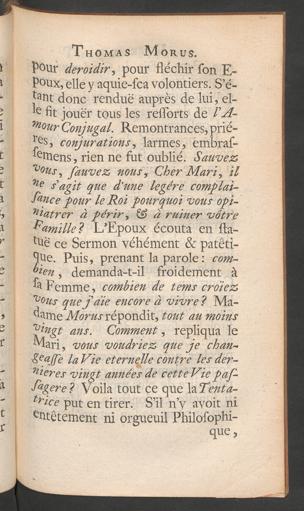 THOMAS MORUS.
pour deroidir, pour fléchir ſon E-
poux, elle y aquieſca volontiers. S'é-
tant donc renduë auprès de lui, el-
le fit joüer tous les reſſorts de l'A-
mour Conjugal. Remontrances, prié-
res, conjurations, larmes, embraſ-
ſemens, rien ne fut oublié. Sauvez
vous, ſauvez nous, Cher Mari, il
ne s'agit que d'une legére complai-
ſance pour le Roi pourquoi vous opi-
niatrer à périr, & à ruiner vôtre
Famille? L'Epoux écouta en ſta-
tuë ce Sermon véhément & patéti-
que. Puis, prenant la parole: com-
bien, demanda-t-il froidement à
ſa Femme, combien de tems croïez
vous que j'aïe encore à vivre? Ma-
dame Morus répondit, tout au moins
vingt ans. Comment, repliqua le
Mari, vous voudriez que je chan-
geaſſe la Vie eternelle contre les der-
nieres vingt années de cette Vie paſ-
ſagere? Voila tout ce que la Tenta-
trice put en tirer. S'il n'y avoit ni
entêtement ni orgueuil Philoſophi-
que,